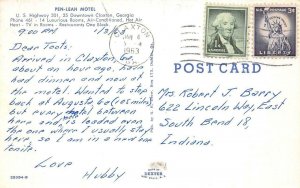 PEN-LEAN MOTEL
U. S. Highways 301, 25 Downtown Claxton, Georgia
Phone 461 - 14 Luxurious Rooms, Air-Conditioned, Hot Air
Heat - TV in Rooms - Restaurants One Block
9:00 PM 1/3/63
Dear Toots,
Arrived in Claxton, Ga.
about an hour ago, have
had dinner and now at
the motel. Wanted to stop
back at Augusta, Ga (80 mi)
but every motel between
here and is loaded even
the one where I usually stay
here, so I am in a new one
tonite.
Love
Hubby
25054-B
JAN 4
1963
POST CARD
1¢
3¢
LIBERTY
Mrs Robert J. Barry
622 Lincoln Way East
South Bend 18,
Indiana.
DEXTER